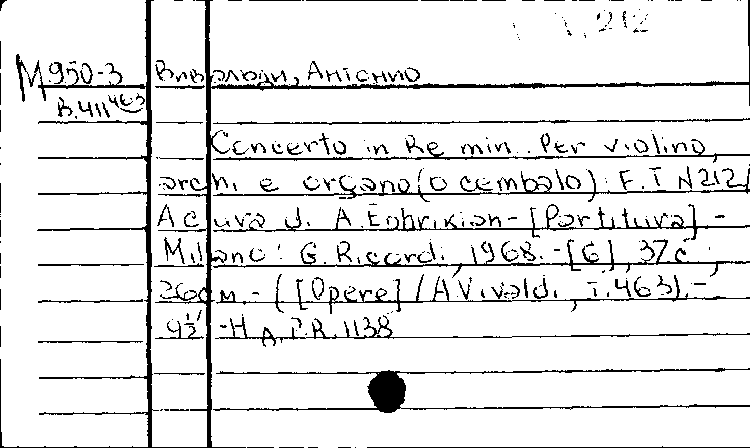 212
М950-3 Вивальди, Антонио
В.411 463
Concerto in Re min. Per violino,
archi e organo (o cembalo): F.I N212/
A cura di A. Ephrikian - [Partitura]. -
Milano: G. Ricordi, 1968. - [6], 37 с.;
26 см. - ([Opere] / A Vivaldi, т.463). -
Н.д. P.R. 1138